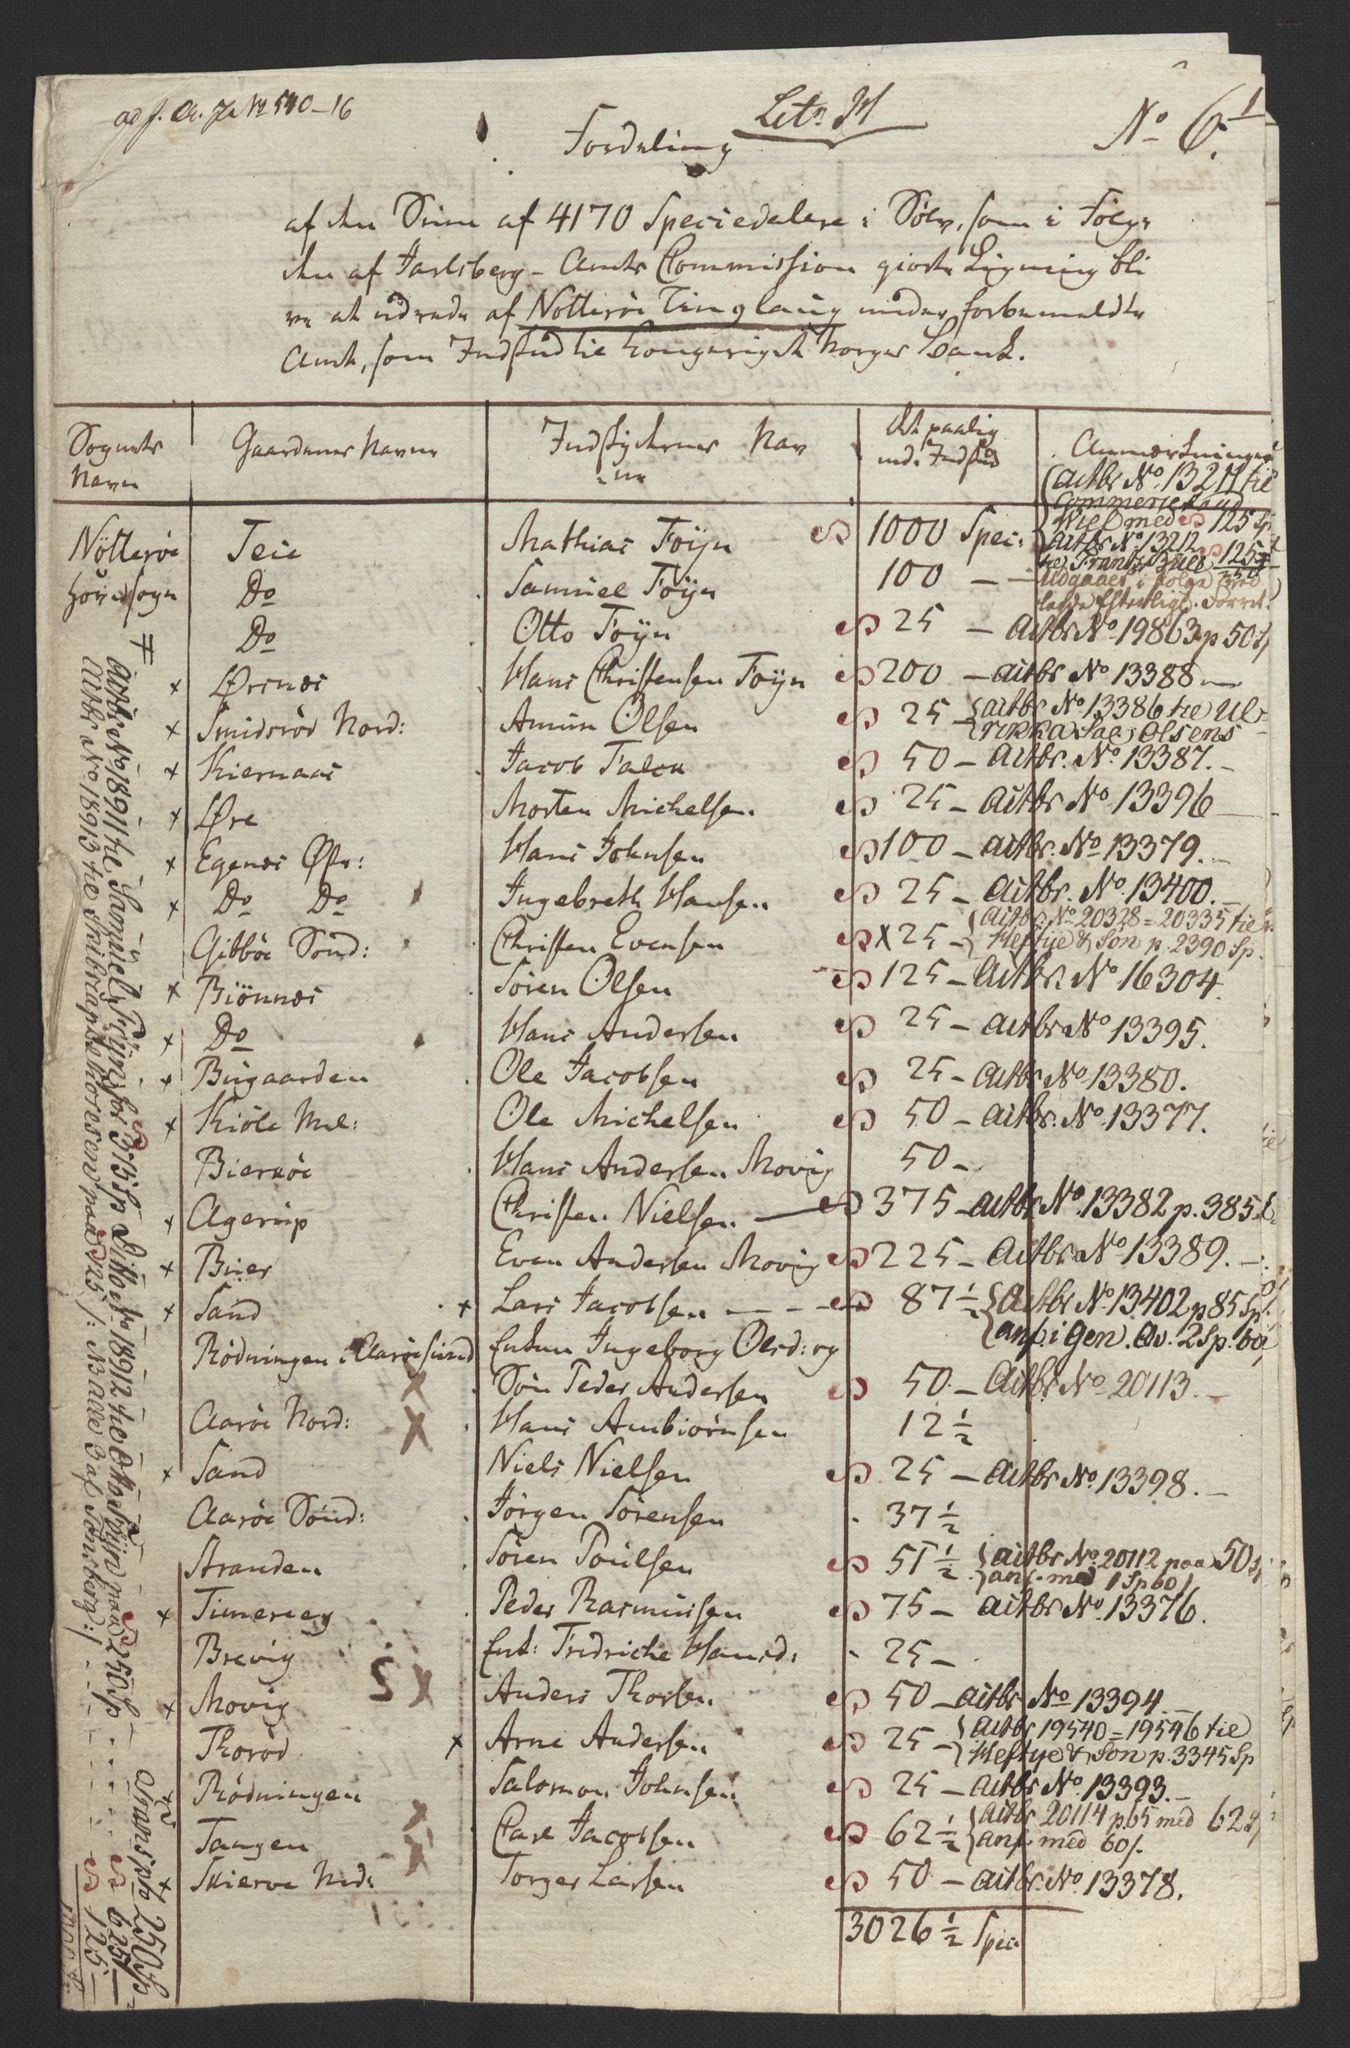 ad J. Nr 540-16
Litr. H
No 6.
1
Fordeling
af den Sum af 4170 Speciedalere i Sölv, som i Fölge
den af Jarlsberg-Amts Commission giorte Ligning bli
ve at udrede af Nötteröe Tinglaug under forbemeldte
Amt, som Indskud til Kongeriget Norges Bank.
Sognets Navn | Gaardenes Navne | Indskydernes Navne | Det paaligende Indskud | Anmærkninger
Nötteröe Hovedsogn | Teie | Mathias Föyn | 1000 Speci: | Actbr No. 13211 til Commerseraad Wiel med 125 Sp Actbr No. 13212 til Frantz Bull 125
Do | Samuel Föyn | 100 — | Udgaaer i Fölge
Do | Otto Föyn | 25 — | Actbr No. 19863 p. 50
x Ørsnes | Hans Christensen Föyn | 200 — | actbr No 13388 —
x Smidsröd Nord: | Amun Olsen | 25 — | actbr No 13386 til Ulrikka Sal. Olsens
x Kiernaas | Jacob Falck | 50 — | Actbr. No. 13387. —
x Øre | Morten Michelsen | 25 — | Actbr No 13396
x Egenes Østr: | Hans Johnsen | 100 — | actbr. No 13379. —
x Do Do | Ingebreth Hansen | 25 — | Actbr. No. 13400. —
Gibböe Sönd: | Christen Evensen | x 25 — | Actbr No 20328 = 20335 til Heftye & Sön p. 2390 Sp.
x Biönnes | Sören Olsen | 125 — | Actbr. No 16304.
x Do | Hans Andersen | 25 — | actbr No 13395.
x Bugaarden | Ole Jacobsen | 25 — | Actbr No. 13380.
x Kiöle Mel: | Ole Michelsen | 50 — | actbr. No. 13377.
Bierköe | Hans Andersen Movig | 50 —
x Agerup | Christen Nielsen | 375 — | actbr No. 13382 p. 385
x Buer | Even Andersen Movig | 225 — | Actbr No 13389. —
x Sand | x Lars Jacobsen | 87 1/2 | Actbr No. 13402 p 85 Sp. anf. i Gen. Qv. 2 Sp. 60
Rödningen i Aaröesund | Enken Ingeborg Olsd: og
X | Sön Peder Andersen | 50 — | Actbr No 20113. —
Aaröe Nord: X | Hans Ambiörnsen | 12 1/2
x Sand | Niels Nielsen | 25 — | Actbr No. 13398. —
Aaröe Sönd: | Jörgen Sörensen | 37 1/2
Stranden | Sören Poulsen | 51 1/2 | actbr No. 20112 paa 50 Sp anf. med 1 Sp 60
x Timereeg | Peder Rasmussen | 75 — | actbr No. 13376.
Brevig | Enk: Fredriche Hansd: | 25 —
x Movig S X | Anders Thorsen | 50 — | actbr No 13394 —
Thoröd | x Arne Andersen | 25 — | Actbr 19540 = 19546 til Heftye & Sön p. 3345 Sp
x Rödningen | Salomon Johnsen | 25 — | actbr No 13393. —
Tangen X | Carl Jacobsen | 62 1/2 | actbr 20114 p. 65 med 62 anf. med 60
x Skierve Ned: X | Torger Larsen | 50 — | actbr. No. 13378.
3026 1/2 Spec
# Actbr No 18911 til Samuel Föyn for 375 Sp Ditto No 18912 til Otto Föyn paa 250 Sp — Transp. 250 Sp
625 —
Actbr No 18913 til paa 125 /: NB alle 3 af Tönsberg :/ 125 —
1000